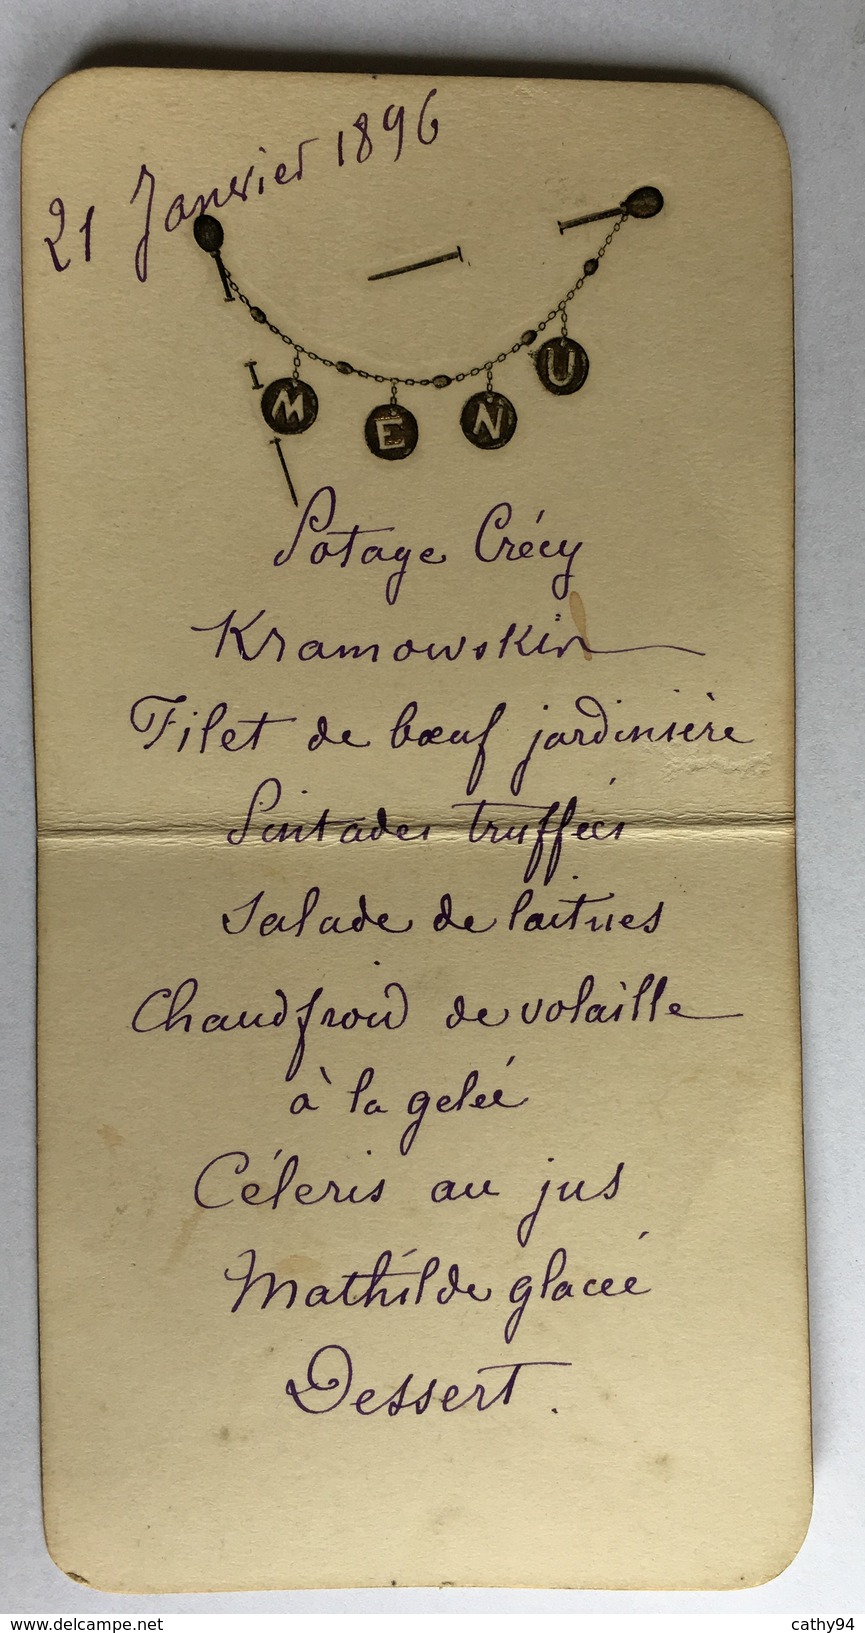 21 Janvier 1896
MENU
Potage Crécy
Kramowskin
Filet de bœuf jardinière
Pintades truffées
Salade de laitues
Chaudfroid de volaille
à la gelée
Céleris au jus
Mathilde glacée
Dessert.
© www.delcampe.net
cathy94